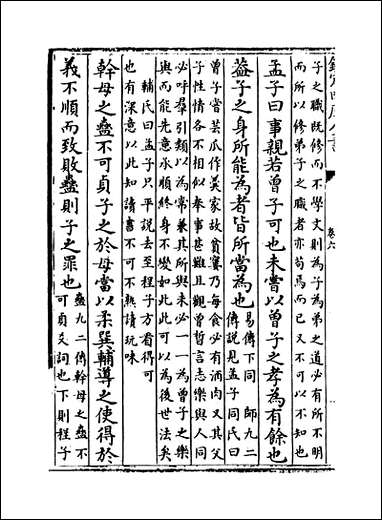 欽定四庫全書
卷六
子之職既修而不學文則為子為弟之道必有所不明
而所以修弟子之職者亦苟焉而已又不可以不知也
孟子曰事親若曾子可也未嘗以曾子之孝為有餘也
蓋子之身所能為者皆所當為也
易傳下同 師九二
傳說見孟子同氏曰
曾子嘗芸瓜作羮家故貧窶乃每食必有酒肉又其父
子性情各不相似奉事甚難且觀曾晳言志樂與人同
必呼羣引類以為常兼其所與未必一一為曾子之樂
與而能先意承順終身不變如此此可以為後世法矣
輔氏曰孟子只平說去至程子方看得可
也有深意以此知讀書不可不熟讀玩味
幹母之蠱不可貞子之於母當以柔巽輔導之使得於
義不順而致敗蠱則子之罪也
蠱九二傳幹母之蠱不
可貞爻詞也下則程子